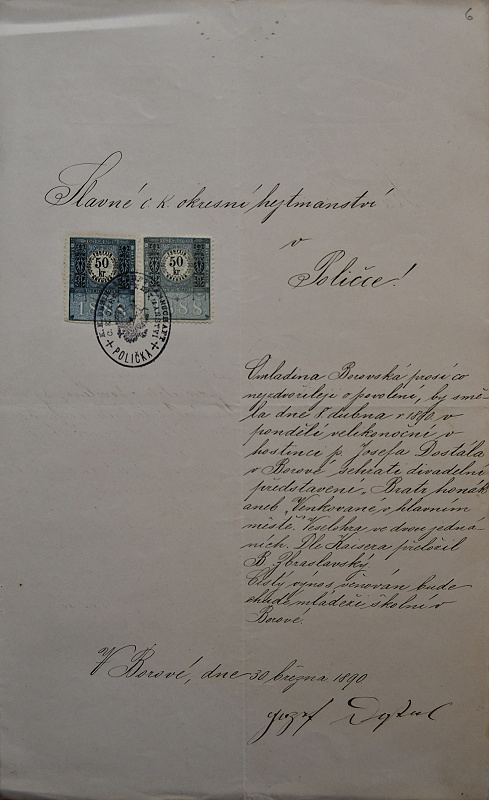 6
Slavné c. k. okresní hejtmanství
v
Poličce!
50
kr
50
kr
188
88
POLIČKA
Omladina Borovská prosí co
nejzdvořileji o povolení, by smě-
la dne 8. dubna r. 1890, v
pondělí velikonoční v
hostinci p. Josefa Dostála
v Borové sehráti divadelní
představení, Bratr honák
aneb „Venkované v hlavním
městě. Veselohra ve dvou jedná-
ních. Dle Kaisera přeložil
B. Zbraslavský.
Čistý výnos věnován bude
chudé mládeži školní v
Borové.
V Borové, dne 30 března 1890
Jozef